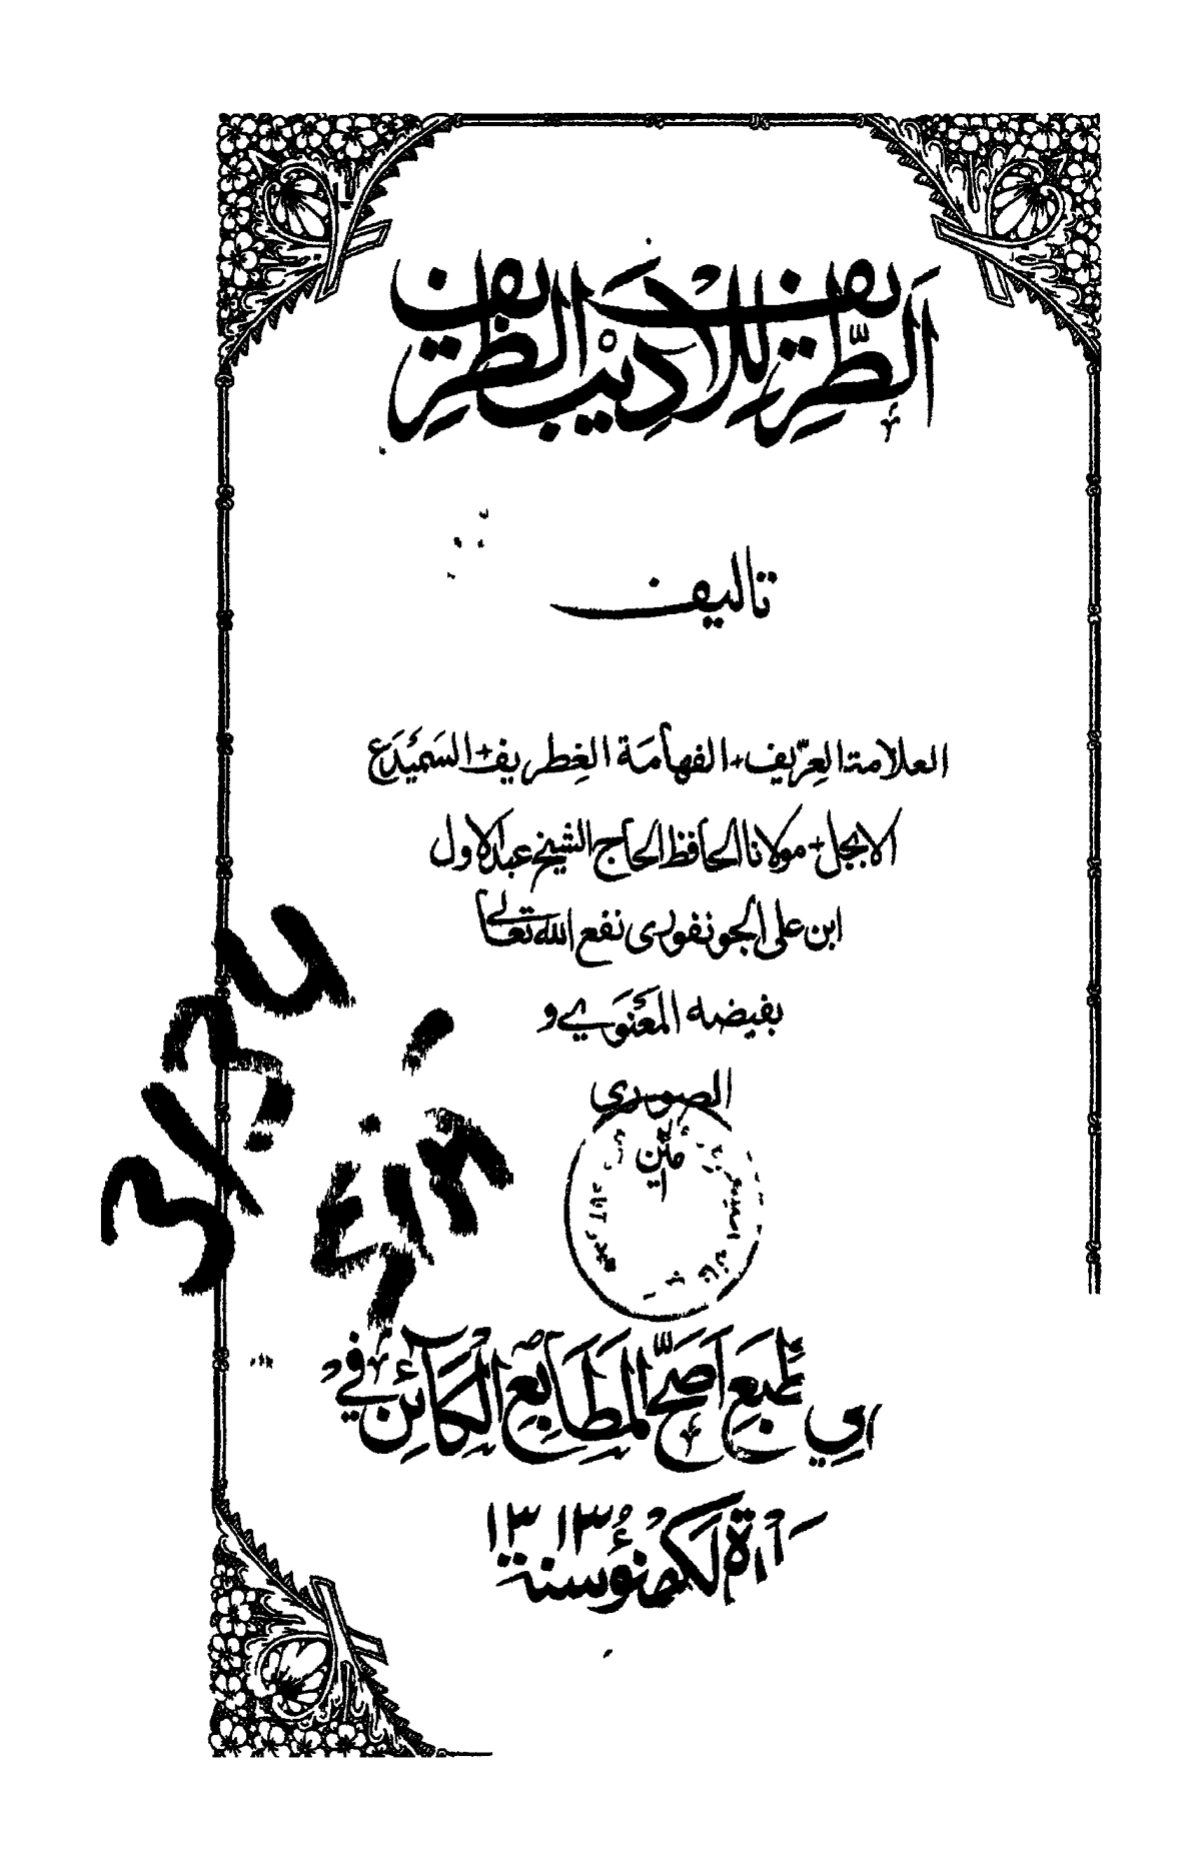 اَلطَّرِيف لِلاَدِيْب الظَّرِيف
تاليف
العلامة العِرّيف + الفهامَة الغِطريف + السَمَيْدَع
الابجل + مولانا الحافظ الحاج الشيخ عبد الاول
ابن علي الجونفوری نفع الله تعالٰی
بفيضه المَعْنَوِي و
الصوري
طُبِعَ اَصَحِّ المَطَابِعِ الْكَآئِنْ فِيْ
لَكْهنؤ سنة ١٣١٣